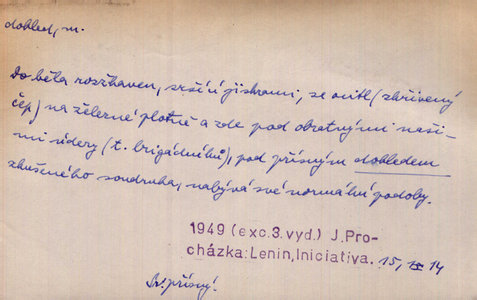 dohled, m.
Do běla rozžhaven, srší ú jiskrami, se ocitl (zkřivený
čep) na železné plotně a zde pod obratnými naši-
mi údery (t. brigádníků), pod přísným dohledem
zkušeného soudruha, nabývá své normální podoby.
1949 (exc.3.vyd.) J.Pro-
cházka:Lenin,Iniciativa. 15, 14
Sv. přísný.